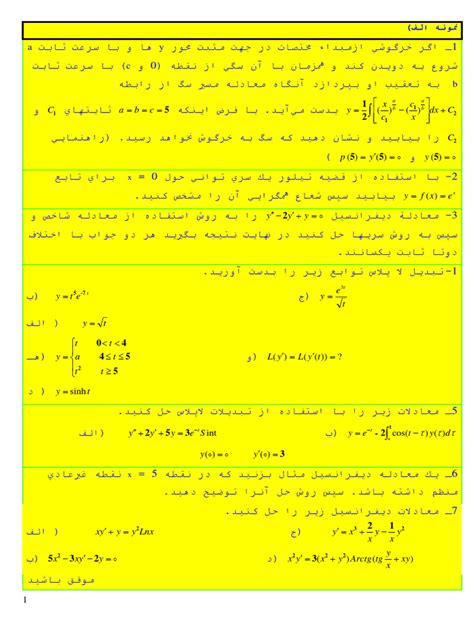 نمونه الف)
1_ اگر خرگوشي ازمبداء مختصات در جهت مثبت محور y ها و با سرعت ثابت a
شروع به دويدن کند و همزمان با آن سگي از نقطه (0 و c) با سرعت ثابت
b به تعقيب او بپردازد آنگاه معادله مسير سگ از رابطه
y = 1/2 ∫[(x/c₁)^(a/b) − (c₁/x)^(a/b)]dx + C₂ بدست مي‌آيد. با فرض اينکه a = b = c = 5 ثابتهاي C₁ و
C₂ را بيابيد و نشان دهيد که سگ به خرگوش نخواهد رسيد. (راهنمايي
y(5) = ∘ و p(5) = y′(5) = ∘ )
2- با استفاده از قضيه تيلور يک سري تواني حول x = 0 براي تابع
y = f(x) = eˣ بيابيد سپس شعاع همگرايي آن را مشخص کنيد.
3- معادلة ديفرانسيل y″ − 2y′ + y = ∘ را به روش استفاده از معادله شاخص و
سپس به روش سريها حل کنيد در نهايت نتيجه بگيريد هر دو جواب با اختلاف
دوتا ثابت يکسانند.
1-تبديل لا پلاس توابع زير را بدست آوريد.
ب) y = t⁵e⁻⁷ᵗ ج) y = e³ᵗ/√t
الف ) y = √t
هـ) y = { t 0 < t < 4 ; a 4 ≤ t ≤ 5 ; t² t ≥ 5 و) L(y′) = L(y′(t)) = ?
د ) y = sinh t
5_ معادلات زير را با استفاده از تبديلات لاپلاس حل کنيد.
الف) y″ + 2y′ + 5y = 3e⁻ᵗ S int ب) y = e⁻ᵗ - 2∫cos(t − τ) y(τ)dτ
y(∘) = ∘ y′(∘) = 3
6_ يک معادله ديفرانسيل مثال بزنيد که در نقطه x = 5 نقطه غيرعادي
منظم داشته باشد. سپس روش حل آنرا توضيح دهيد.
7_ معادلات ديفرانسيل زير را حل کنيد.
الف ) xy′ + y = y²Lnx ج) y′ = x³ + 2/x y − 1/x y²
ب) 5x² − 3xy′ − 2y = ∘ د) x²y′ = 3(x² + y²)Arctg(tg y/x + xy)
موفق باشيد
1